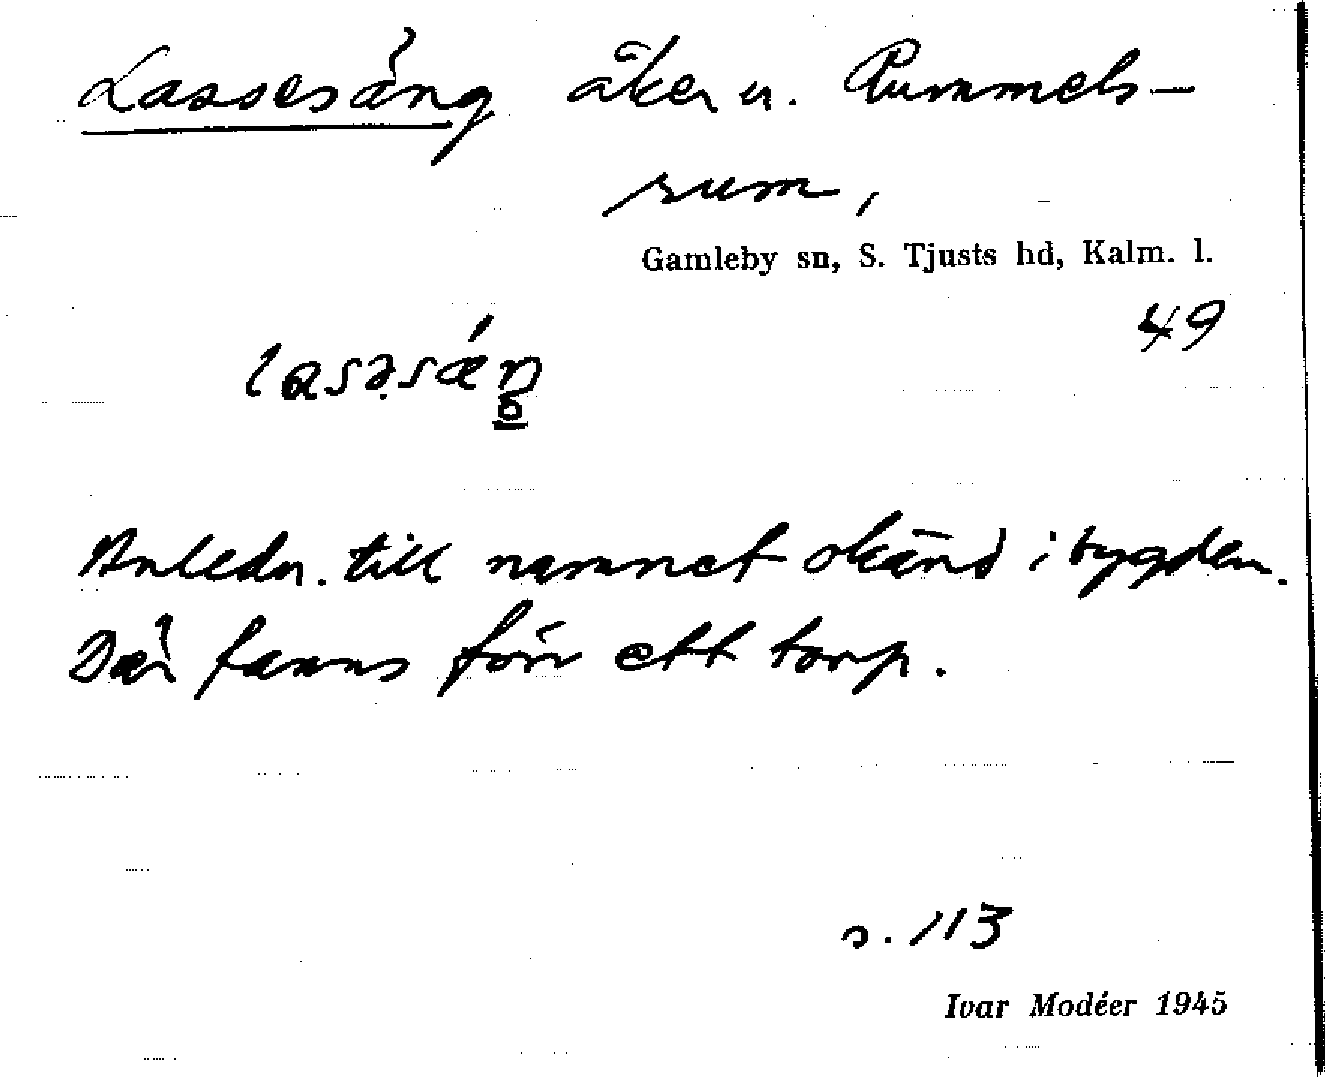 Lassesäng åker u. Rummels-
rum,
Gamleby sn, S. Tjusts hd, Kalm. l.
49
Anledn. till namnet okänd i bygden.
Där fanns förr ett torp.
s. 113
Ivar Modéer 1945